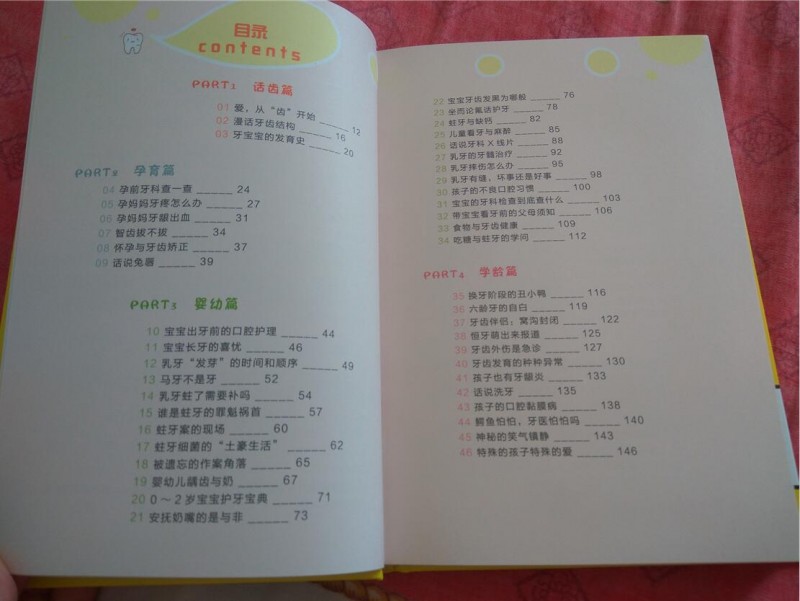 目录
contents
PART1 话齿篇
01 爱，从“齿”开始 _____ 12
02 漫话牙齿结构 _____ 16
03 牙宝宝的发育史 _____ 20
PART2 孕育篇
04 孕前牙科查一查 _____ 24
05 孕妈妈牙疼怎么办 _____ 27
06 孕妈妈牙龈出血 _____ 31
07 智齿拔不拔 _____ 34
08 怀孕与牙齿矫正 _____ 37
09 话说兔唇 _____ 39
PART3 婴幼篇
10 宝宝出牙前的口腔护理 _____ 44
11 宝宝长牙的喜忧 _____ 46
12 乳牙“发芽”的时间和顺序 _____ 49
13 马牙不是牙 _____ 52
14 乳牙蛀了需要补吗 _____ 54
15 谁是蛀牙的罪魁祸首 _____ 57
16 蛀牙案的现场 _____ 60
17 蛀牙细菌的“土豪生活” _____ 62
18 被遗忘的作案角落 _____ 65
19 婴幼儿龋齿与奶 _____ 67
20 0～2岁宝宝护牙宝典 _____ 71
21 安抚奶嘴的是与非 _____ 73
22 宝宝牙齿发黑为哪般 _____ 76
23 坐而论氟话护牙 _____ 78
24 蛀牙与缺钙 _____ 82
25 儿童看牙与麻醉 _____ 85
26 话说牙科X线片 _____ 88
27 乳牙的牙髓治疗 _____ 92
28 乳牙摔伤怎么办 _____ 95
29 乳牙有缝，坏事还是好事 _____ 98
30 孩子的不良口腔习惯 _____ 100
31 宝宝的牙科检查到底查什么 _____ 103
32 带宝宝看牙前的父母须知 _____ 106
33 食物与牙齿健康 _____ 109
34 吃糖与蛀牙的学问 _____ 112
PART4 学龄篇
35 换牙阶段的丑小鸭 _____ 116
36 六龄牙的自白 _____ 119
37 牙齿伴侣：窝沟封闭 _____ 122
38 恒牙萌出来报道 _____ 125
39 牙齿外伤是急诊 _____ 127
40 牙齿发育的种种异常 _____ 130
41 孩子也有牙龈炎 _____ 133
42 话说洗牙 _____ 135
43 孩子的口腔黏膜病 _____ 138
44 鳄鱼怕怕，牙医怕怕吗 _____ 140
45 神秘的笑气镇静 _____ 143
46 特殊的孩子特殊的爱 _____ 146